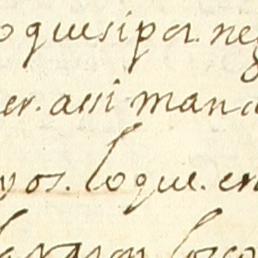 o que si por. neg
er. assi mand
vos. lo que. en